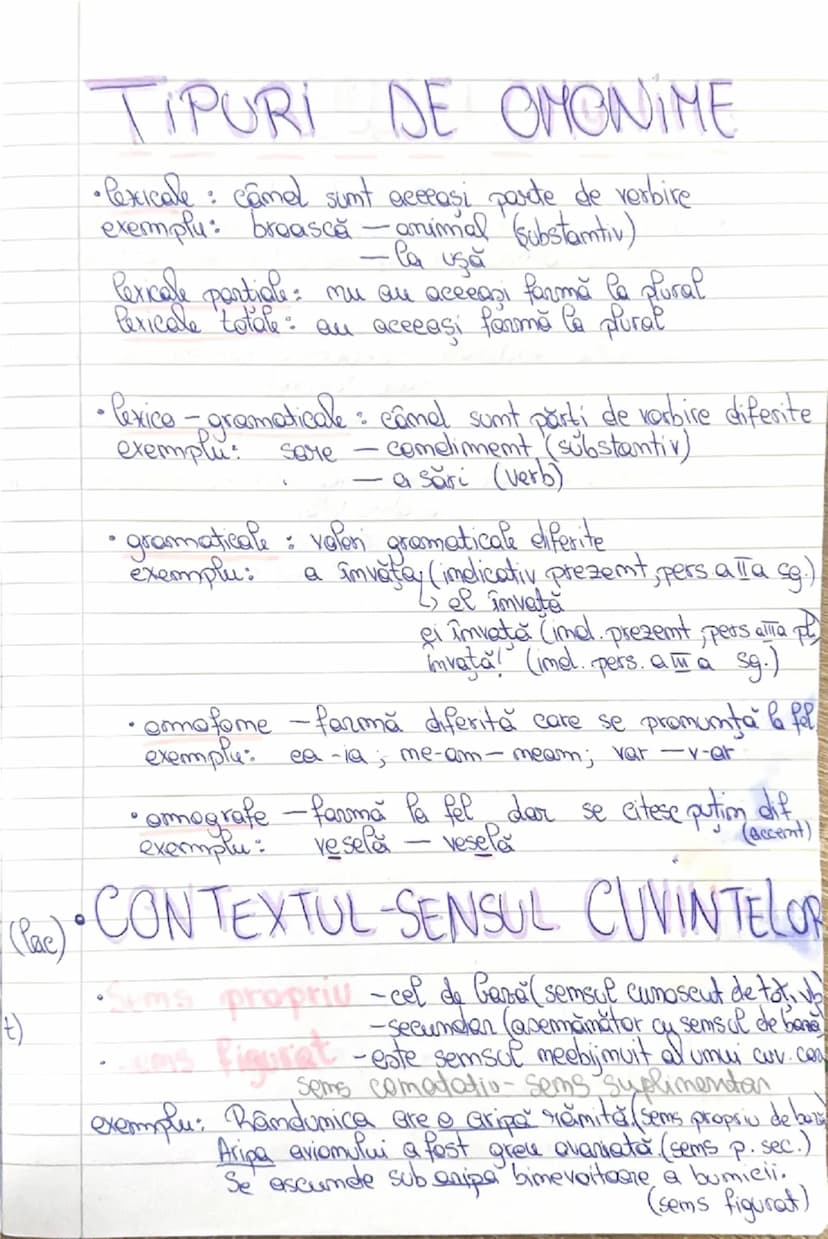 TIPURI DE OMONIME
• lexicale : când sunt aceeași parte de vorbire
exemplu: broască – animal (substantiv)
– la ușă
lexicale parțiale: nu au aceeași formă la plural
lexicale totale: au aceeași formă la plural
• lexico – gramaticale : când sunt părți de vorbire diferite
exemplu: sare – condiment (substantiv)
– a sări (verb)
• gramaticale : valori gramaticale diferite
exemplu: a învăța (indicativ prezent, pers a II a sg.)
↳ el învață
ei învață (ind. prezent, pers a III a pl)
învață! (ind. pers. a III a sg.)
• omofome – formă diferită care se pronunță la fel
exemplu: ea - ia ; ne-am – neam; var – v-ar
• omografe – formă la fel dar se citesc puțin dif.
(accent)
exemplu: veselă – veselă
(lac) • CONTEXTUL-SENSUL CUVINTELOR
• Sens propriu – cel de bază (sensul cunoscut de toți vb
t) – secundar (asemămător cu sensul de bază
• sens figurat – este sensul neobijnuit al unui cuv.
sens conotativ – sens suplimentar
exemplu: Rândunica are o aripă rănită. (sens propriu de bază
Aripa avionului a fost greu avariată. (sens p. sec.)
Se ascunde sub aripa binevoitoare a bunicii.
(sens figurat)